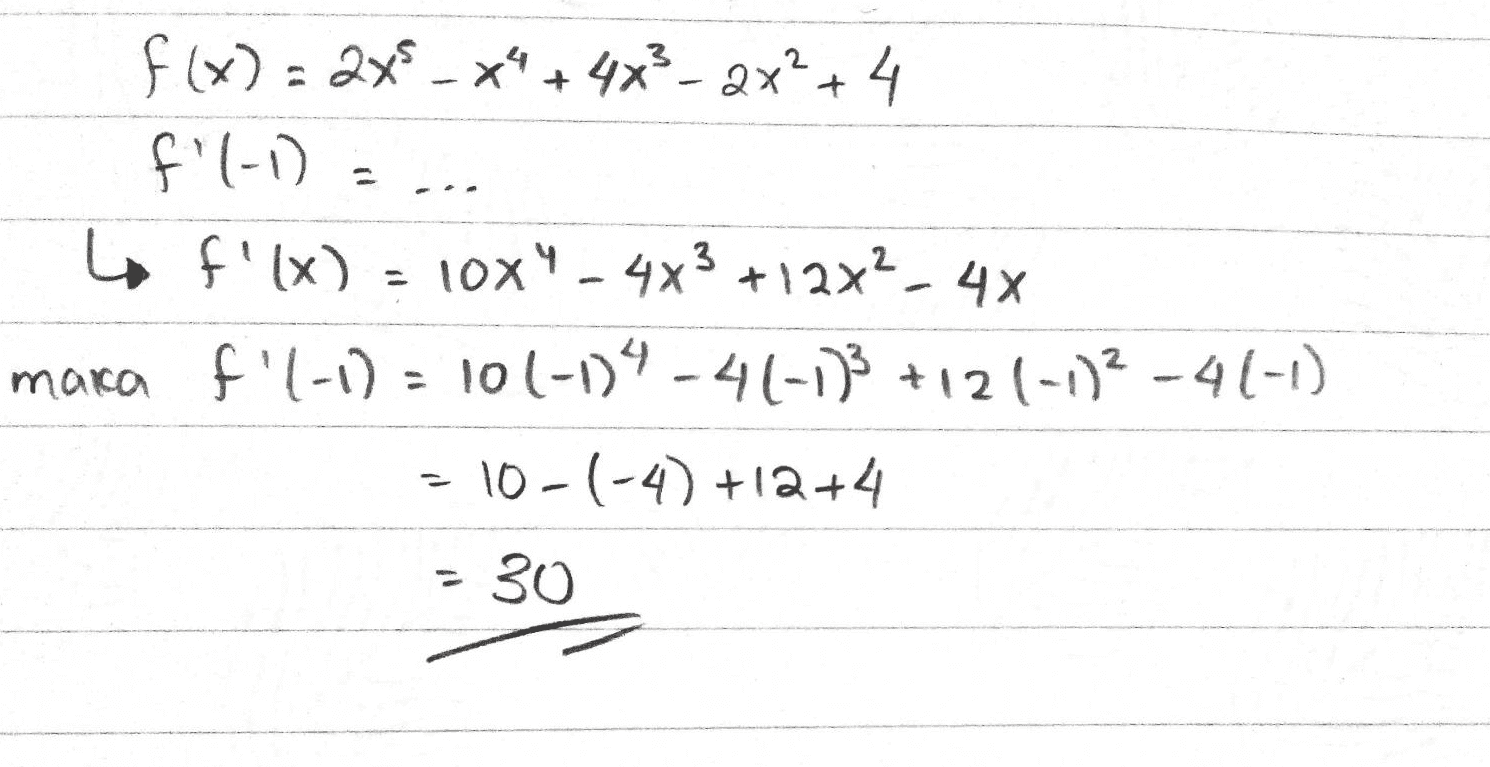 f(x) = 2x⁵ - x⁴ + 4x³ - 2x² + 4
f'(-1) = ...
↳ f'(x) = 10x⁴ - 4x³ + 12x² - 4x
maka f'(-1) = 10(-1)⁴ - 4(-1)³ + 12(-1)² - 4(-1)
= 10 - (-4) + 12 + 4
= 30